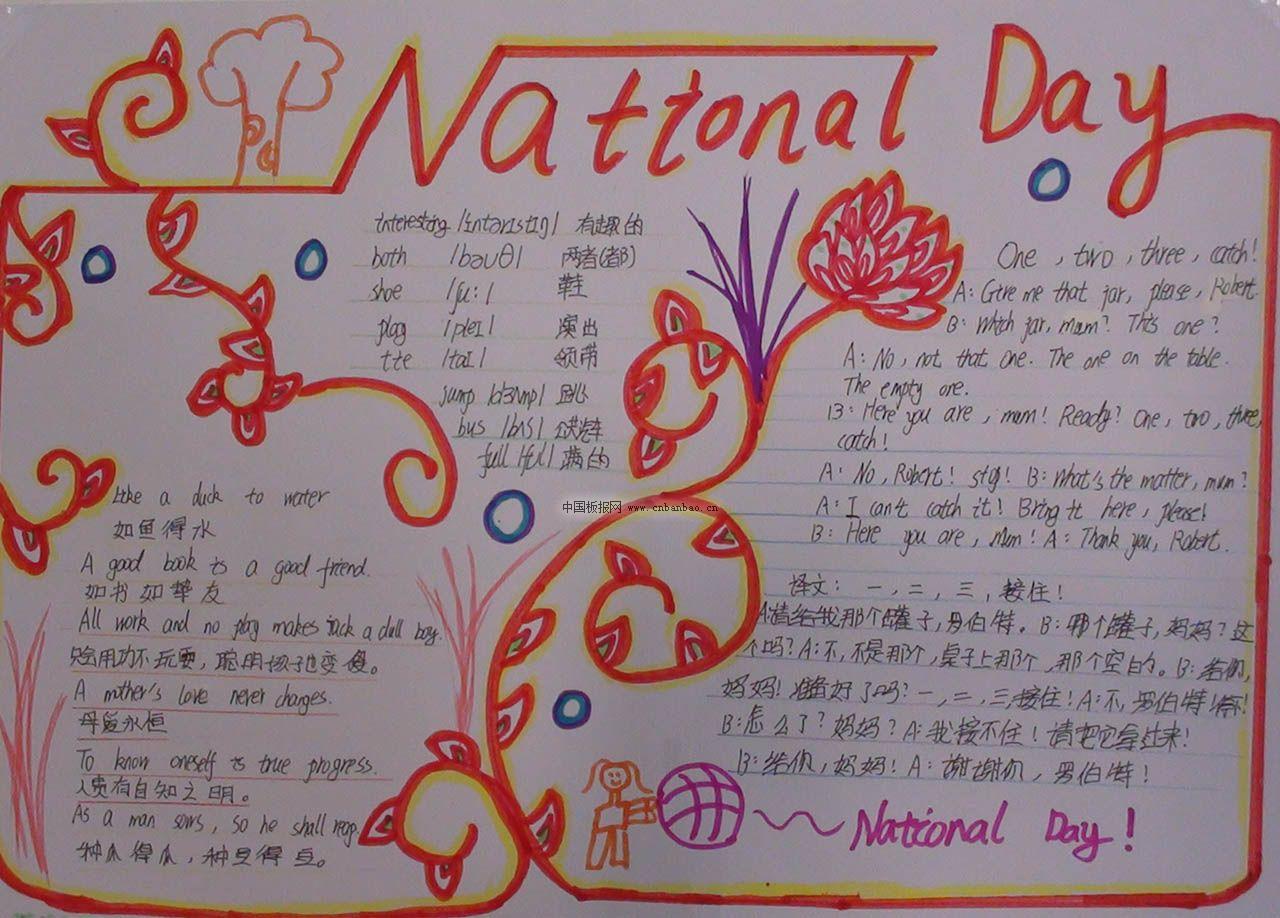 National Day
interesting /intərɪstɪŋ/ 有趣的
both /bəυθ/ 两者(都)
shoe /ʃu:/ 鞋
play /pleɪ/ 演出
tie /taɪ/ 领带
jump /dʒʌmp/ 跳
bus /bʌs/ 公共汽车
full /ful/ 满的
Like a duck to water
如鱼得水
A good book is a good friend.
如书如挚友
All work and no play makes jack a dull boy.
只会用功不玩耍，聪明孩子也变傻。
A mother's love never changes.
母爱永恒
To know oneself is true progress.
人贵有自知之明。
As a man sows, so he shall reap.
种瓜得瓜，种豆得豆。
One, two, three, catch!
A: Give me that jar, please, Robert.
B: Which jar, mum? This one?
A: No, not that one. The one on the table.
The empty one.
B: Here you are, mum! Ready? One, two, three,
catch!
A: No, Robert! stop! B: What's the matter, mum?
A: I can't catch it! Bring it here, please!
B: Here you are, Mum! A: Thank you, Robert.
译文：一，二，三，接住！
A:请给我那个罐子，罗伯特。B:哪个罐子，妈妈？这
个吗？A:不，不是那个，桌子上那个，那个空白的。B:给你，
妈妈！准备好了吗？一，二，三，接住！A:不，罗伯特！
B:怎么了？妈妈？A:我接不住！请把它拿过来！
B:给你，妈妈！A:谢谢你，罗伯特！
National Day!
中国板报网 www.cnbanbao.cn